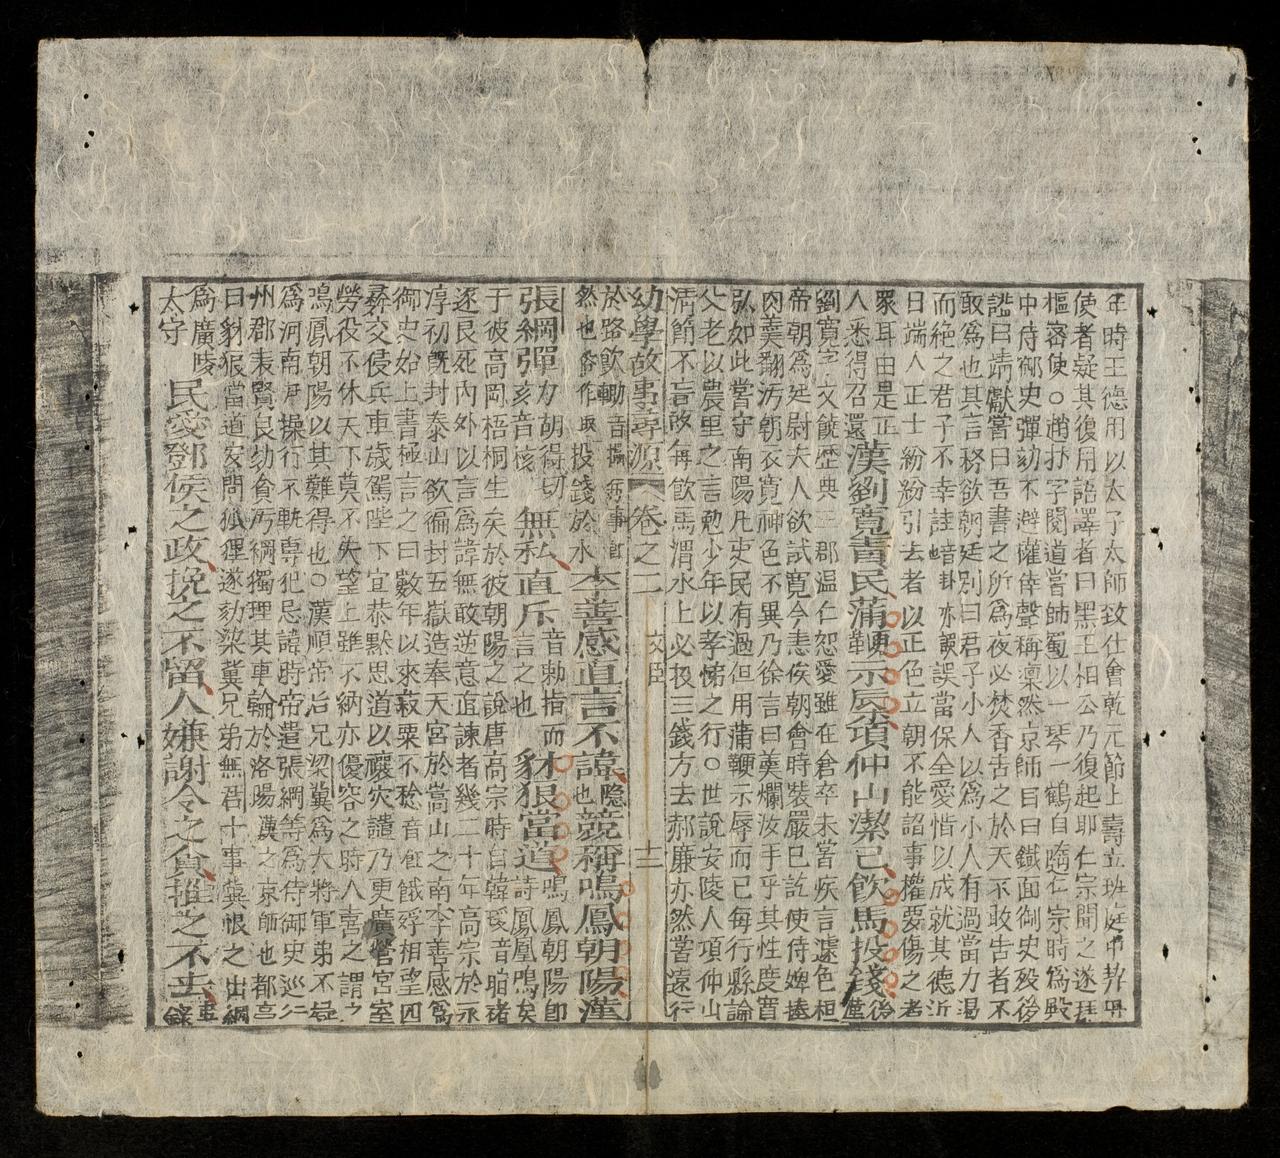 年時王德用以太子太師致仕會乾元節上壽立班庭中契丹
使者疑其復用語譯者曰黑王相公乃復起耶仁宗聞之遂拜
樞密使○趙抃字閱道嘗帥蜀以一琴一鶴自隨仁宗時爲殿
中侍御史彈劾不避權倖聲稱凛然京師目曰鐵面御史歿後
謚曰淸獻嘗曰吾書之所爲夜必焚香告之於天不敢告者不
敢爲也其言務欲朝廷別曰君子小人以爲小人有過當力遏
而絶之君子不幸詿音卦亦誤誤當保全愛惜以成就其德近
日端人正士紛紛引去者以正色立朝不能諂事權要傷之者
衆耳由是正
人悉得召還漢劉寬責民蒲鞭示辱項仲山潔己飮馬投錢漢後
劉寬字文饒歷典三郡温仁恕愛雖在倉卒未嘗疾言遽色桓
帝朝爲廷尉夫人欲試寬令恚俟朝會時裝嚴已訖使侍婢捧
肉羹翻汚朝衣寬神色不異乃徐言曰羹爛汝手乎其性度寬
弘如此嘗守南陽凡吏民有過但用蒲鞭示辱而已每行縣論
父老以農里之言勉少年以孝悌之行○世說安陵人項仲山
淸節不苟故每飮馬渭水上必投三錢方去郝廉亦然嘗遠行
幼學故事尋源 卷之二 文臣 十二
於路飮輙音撫每事
然也俗作取投錢於水李善感直言不諱隐也競稱鳴鳳朝陽漢
張綱彈力胡得切亥音核無私直斥音勅指而言之也豺狼當道鳴鳳朝陽卽詩鳳凰鳴矣
于彼高岡梧桐生矣於彼朝陽之說唐高宗時自韓瑗音㫝褚
逐艮死內外以言爲諱無敢逆意直諫者幾二十年高宗於永
淳初旣封泰山欲徧封五嶽造奉天宮於嵩山之南李善感爲
御史始上書極言之曰數年以來菽粟不稔音餓殍相望四
彛交侵兵車歲駕陛下宜恭默思道以禳灾譴乃更廣營宮室
勞役不休天下莫不失望上雖不納亦優容之時人喜之謂之
鳴鳳朝陽以其難得也○漢順帝后兄梁冀爲大將軍弟不疑
爲河南尹操行不軌専犯忌諱時帝遣張綱等爲侍御史巡行
州郡表賢良劾貪汚綱獨埋其車輪於洛陽漢之京師也都亭
曰豺狼當道安問狐狸遂劾梁冀兄弟無君十事冀恨之出綱
爲廣陵
太守民愛鄧侯之政挽之不留人嫌謝令之貪推之不去書錄